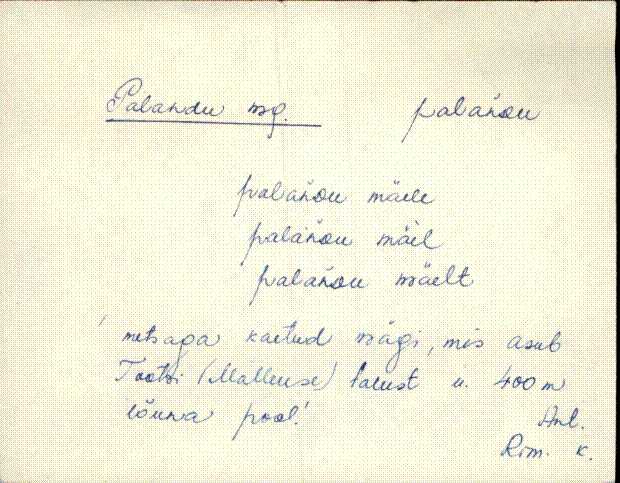 Palandu mg. palandu
palandu mäele
palandu mäel
palandu mäelt
' metsaga kaetud mägi, mis asub
Tootsi (Malleuse) talust u. 400 m
lõuna pool!
Aml.
Rim. k.